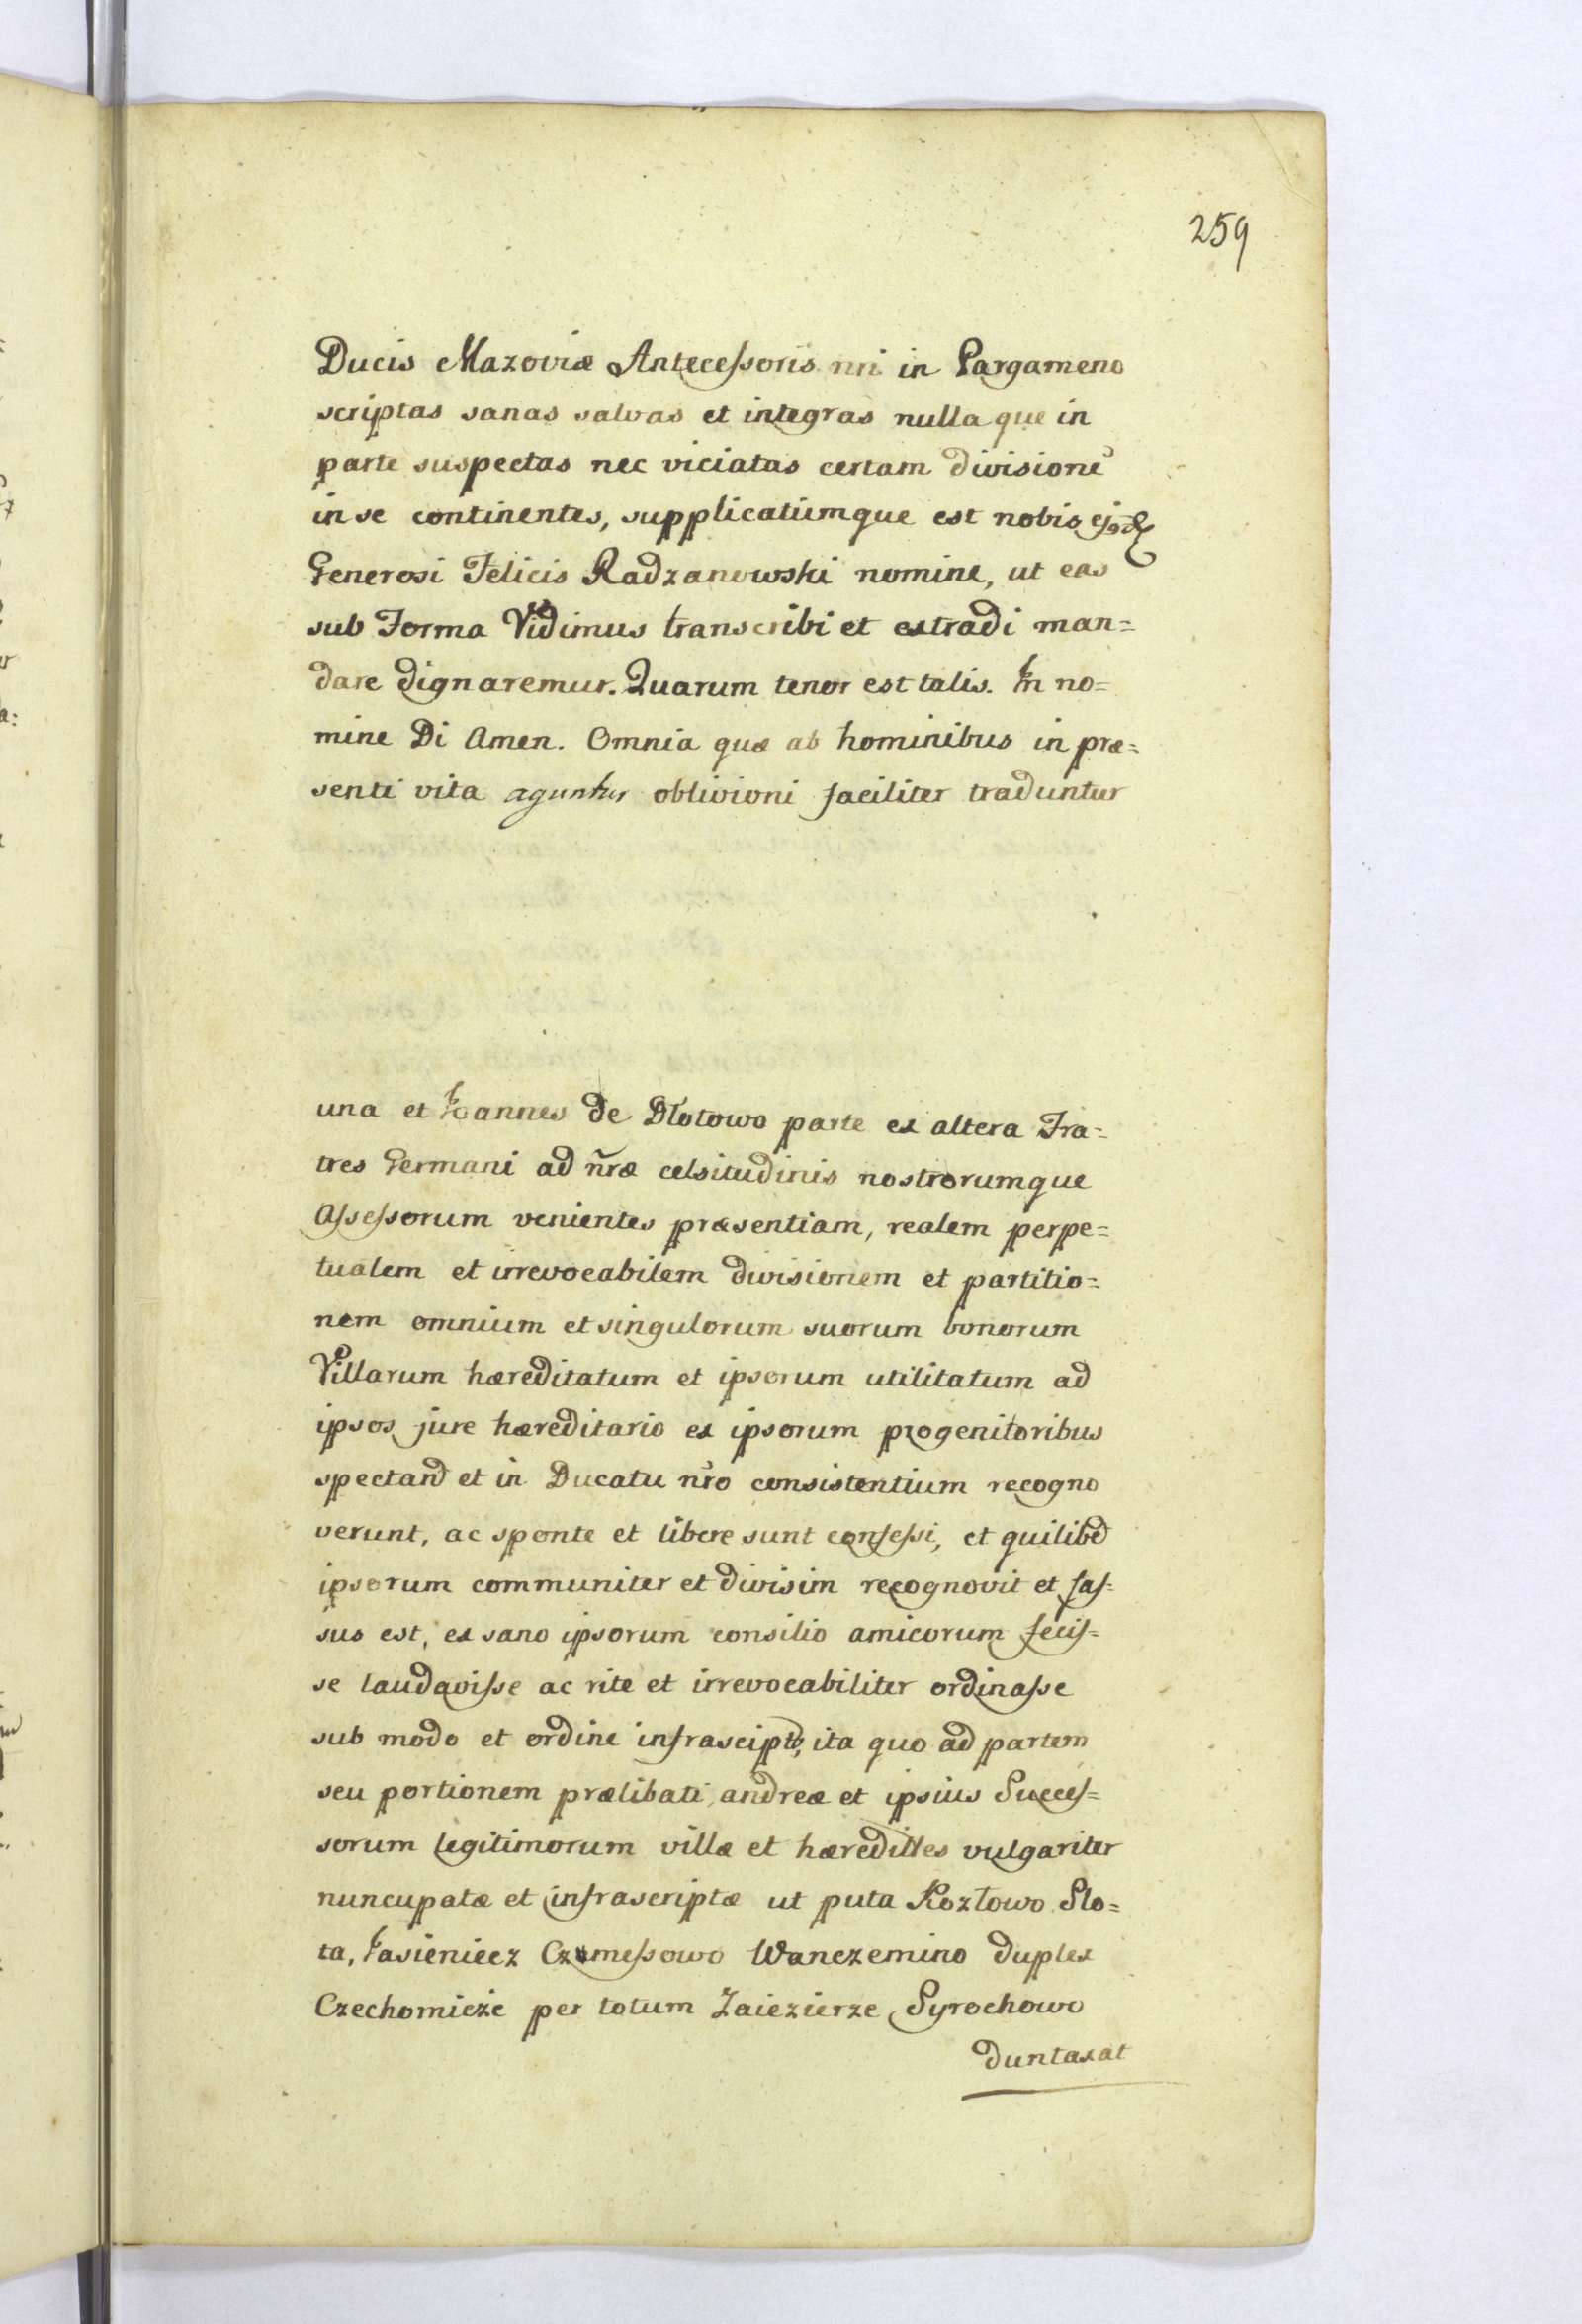 259
Ducis Mazoviæ Antecessoris nri in Pargameno
scriptas sanas salvas et integras nulla que in
parte suspectas nec viciatas certam divisione͂
in se continentes, supplicatumque est nobis
Generosi Felicis Radzanowski nomine, ut eas
sub Forma Vidimus transcribi et extradi man=
dare dignaremur. Quarum tenor est talis. In no=
mine Di Amen. Omnia quæ ab hominibus in præ=
senti vita aguntur oblivioni faciliter traduntur
una et Joannes de Dłotowo parte ex altera Fra=
tres Germani ad nr̃æ celsitudinis nostrorumque
Assessorum venientes præsentiam, realem perpe=
tualem et irrevocabilem divisionem et partitio=
nem omnium et singulorum suorum bonorum
Villarum hæreditatum et ipsorum utilitatum ad
ipsos jure hæreditario ex ipsorum progenitoribus
spectand et in Ducatu nr̃o consistentium recogno
verunt, ac sponte et libere sunt confessi, et quilibet
ipsorum communiter et divisim recognovit et fas=
sus est, ex sano ipsorum consilio amicorum fecis=
se laudavisse ac rite et irrevocabiliter ordinasse
sub modo et ordine infrascipto, ita quo ad partem
seu portionem prælibati andreæ et ipsius Succes=
sorum legitimorum villæ et hæredittes vulgariter
nuncupatæ et infrascriptæ ut puta Kozłowo Slo=
ta, Jasieniecz Czamessowo Wanczemino duplex
Czechomieże per totum Zaiezierze Syrochowo
duntaxat